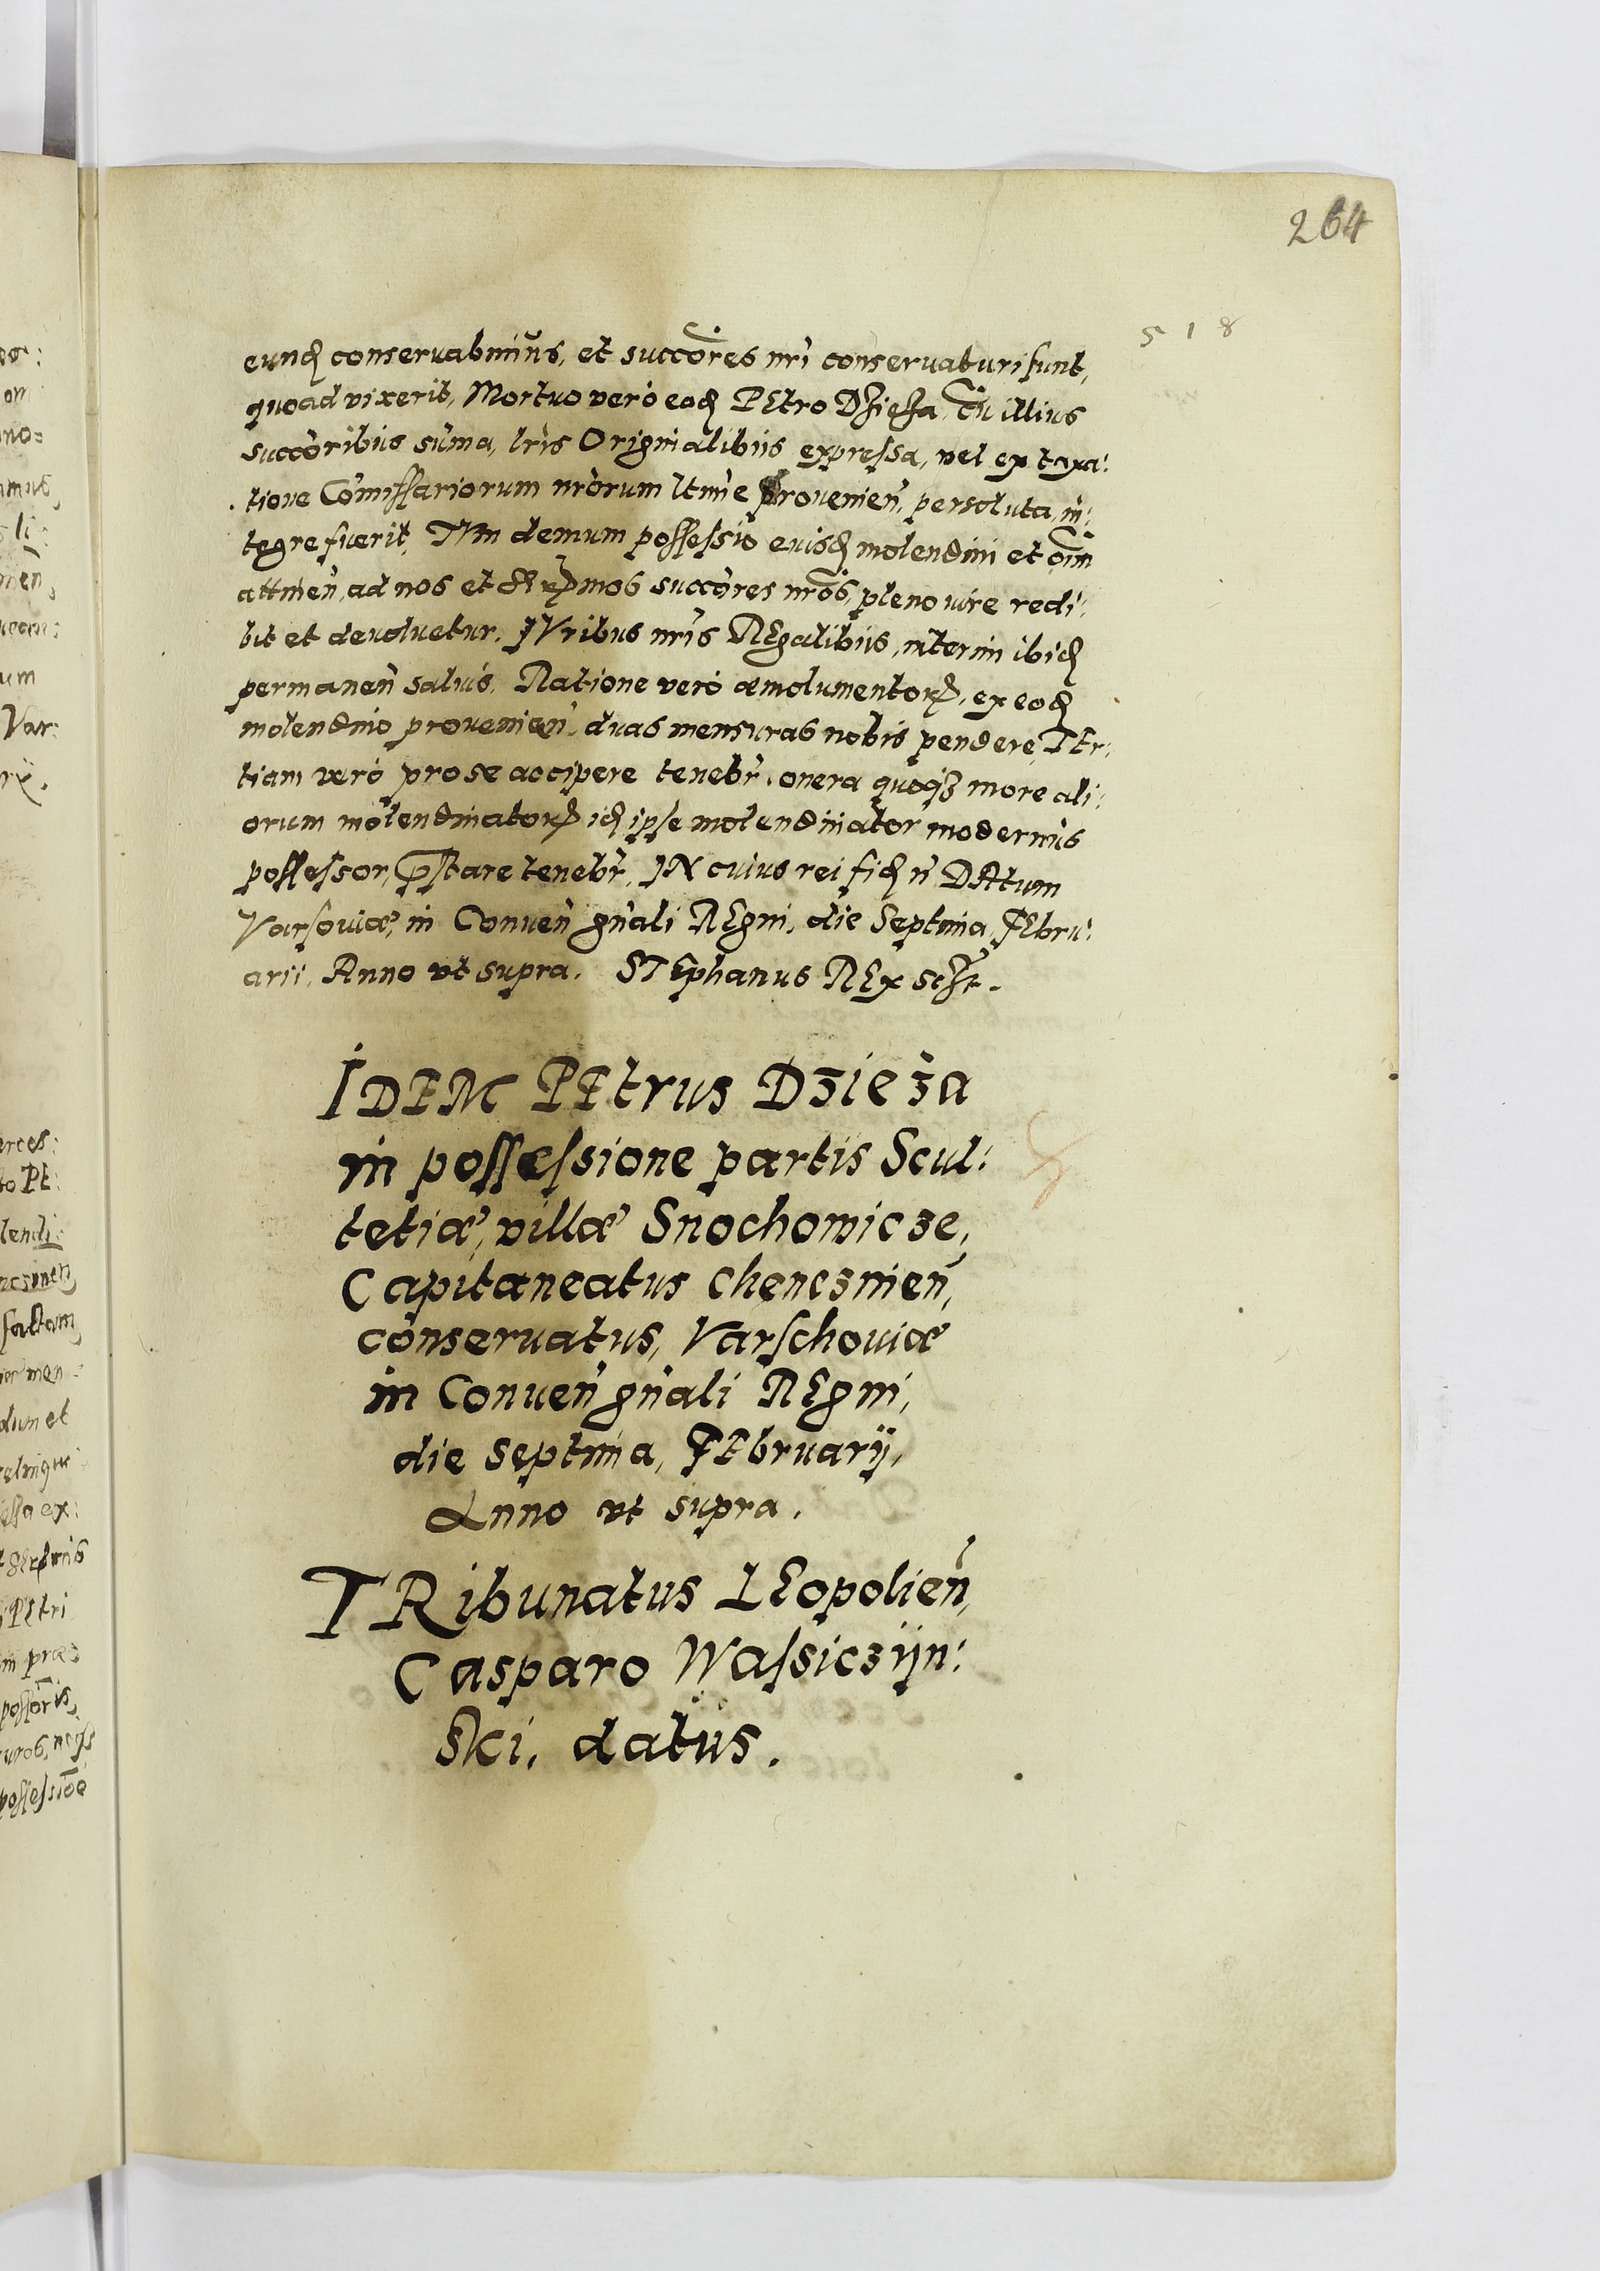 264
5 1 8
eund conseruabimus, et succores nri conseruaturi sunt,
quoad vixerit, Mortuo vero eod PEtro Dzieza, cu illius
succoribus suma, lris Originalibus expressa, vel ex taxa:
tione Comissariorum nrorum ltime prouenien, persoluta, in:
tegre fuerit, TVm demum possessio euisd molendini et oim
attinen, ad nos et Srmos succores nros, pleno iure redi:
bit et deuoluetur. IVribus nris REgalibus, interim ibid
permanen saluis. Ratione vero æmolumentor, ex eod
molendino prouenien, duas mensuras nobis pendere, TEr:
tiam vero pro se accipere tenebr, onera quoqz more ali:
orum molendinator, id ipse molendinator modernus
possessor, pstare tenebr. IN cuius rei fid n DAtum
Varsouiæ, in Conuen gnali REgni, die Septima, FEbru:
arii, Anno vt supra. STEphanus REx sst.
IDEM PEtrus Dzieza
in possessione partis Scul:
tetiæ, villæ Snochowicze,
Capitaneatus Chenczinen,
conseruatus, Varschouiæ
in Conuen gnali REgni,
die Septima, FEbruarij,
Anno vt supra.
TRibunatus LEopolien,
Casparo Wassiczijn:
ski, datus.